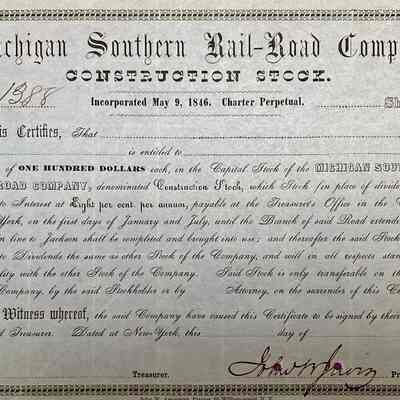 ichigan Southern Rail-Road Comp
CONSTRUCTION STOCK.
1388 Incorporated May 9, 1846. Charter Perpetual. Sh
is Certifies, That
is entitled to
of ONE HUNDRED DOLLARS each, in the Capital Stock of the MICHIGAN SOU
ROAD COMPANY, denominated Construction Stock, which Stock (in place of divide
to Interest at Eight per cent. per annum, payable at the Treasurer's Office in the C
York, on the first days of January and July, until the Branch of said Road extende
n line to Jackson shall be completed and brought into use; and thereafter the said Stock
to Dividends the same as other Stock of the Company, and will in all respects stan
lity with the other Stock of the Company. Said Stock is only transferable on th
Company, by the said Stockholder or by Attorney, on the surrender of this C
Witness whereof, the said Company have caused this Certificate to be signed by their
d Treasurer. Dated at New-York, this day of
Treasurer. Pr